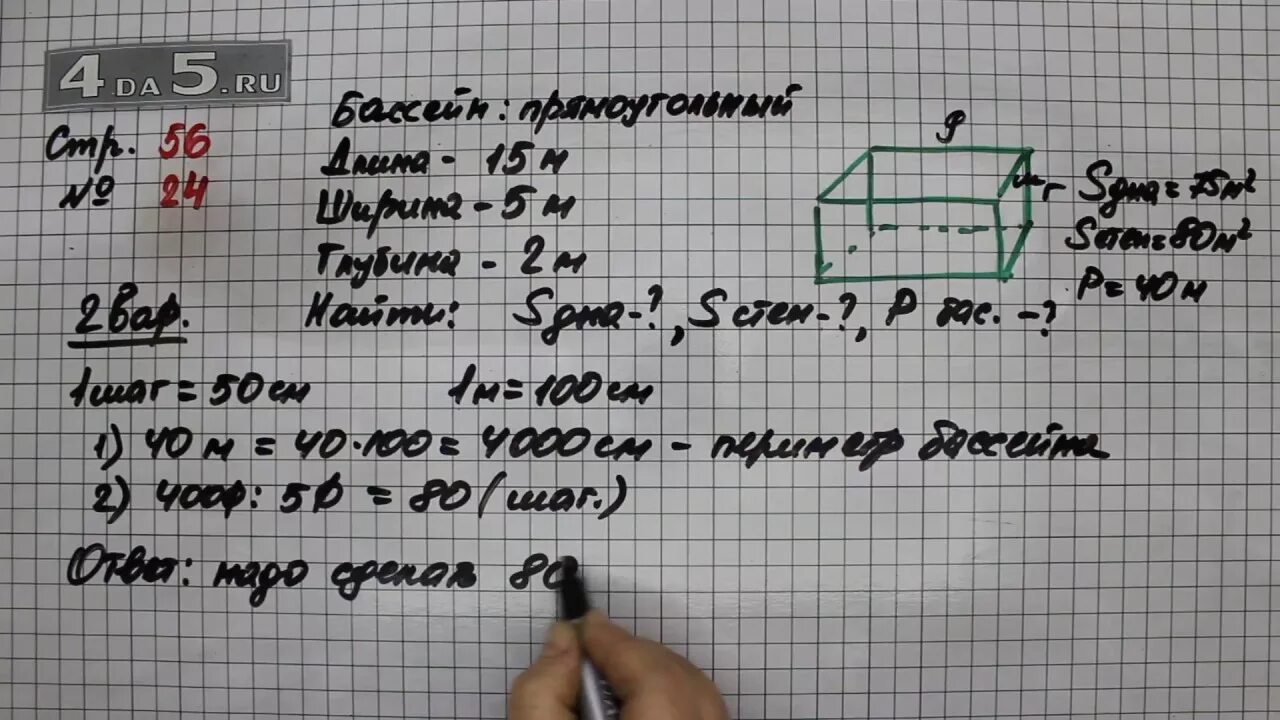 4DA5.RU
Стр. 56
№ 24
Бассейн: прямоугольный
Длина - 15 м
Ширина - 5 м
Глубина - 2 м
Найти: Sдна-?, S стен-?, P бас. -?
Sдна = 75м²
Sстен = 80м²
P = 40 м
2 вар.
1 шаг = 50 см 1 м = 100 см
1) 40 м = 40·100 = 4000 см - периметр бассейна
2) 4000 : 50 = 80 (шаг.)
Ответ: надо сделать 80